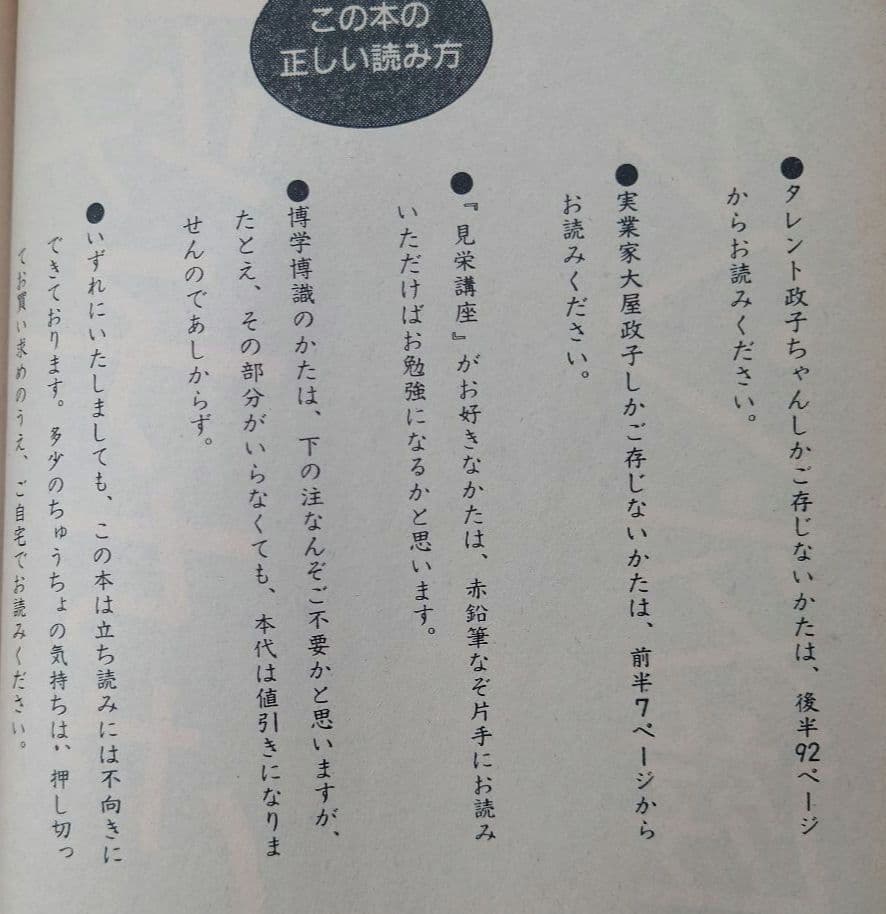 この本の
正しい読み方
●タレント政子ちゃんしかご存じないかたは、後半92ページ
からお読みください。
●実業家大屋政子しかご存じないかたは、前半7ページから
お読みください。
●『見栄講座』がお好きなかたは、赤鉛筆なぞ片手にお読み
いただけばお勉強になるかと思います。
●博学博識のかたは、下の注なんぞご不要かと思いますが、
たとえ、その部分がいらなくても、本代は値引きになりま
せんのであしからず。
●いずれにいたしましても、この本は立ち読みには不向きに
できております。多少のちゅうちょの気持ちは、押し切っ
てお買い求めのうえ、ご自宅でお読みください。